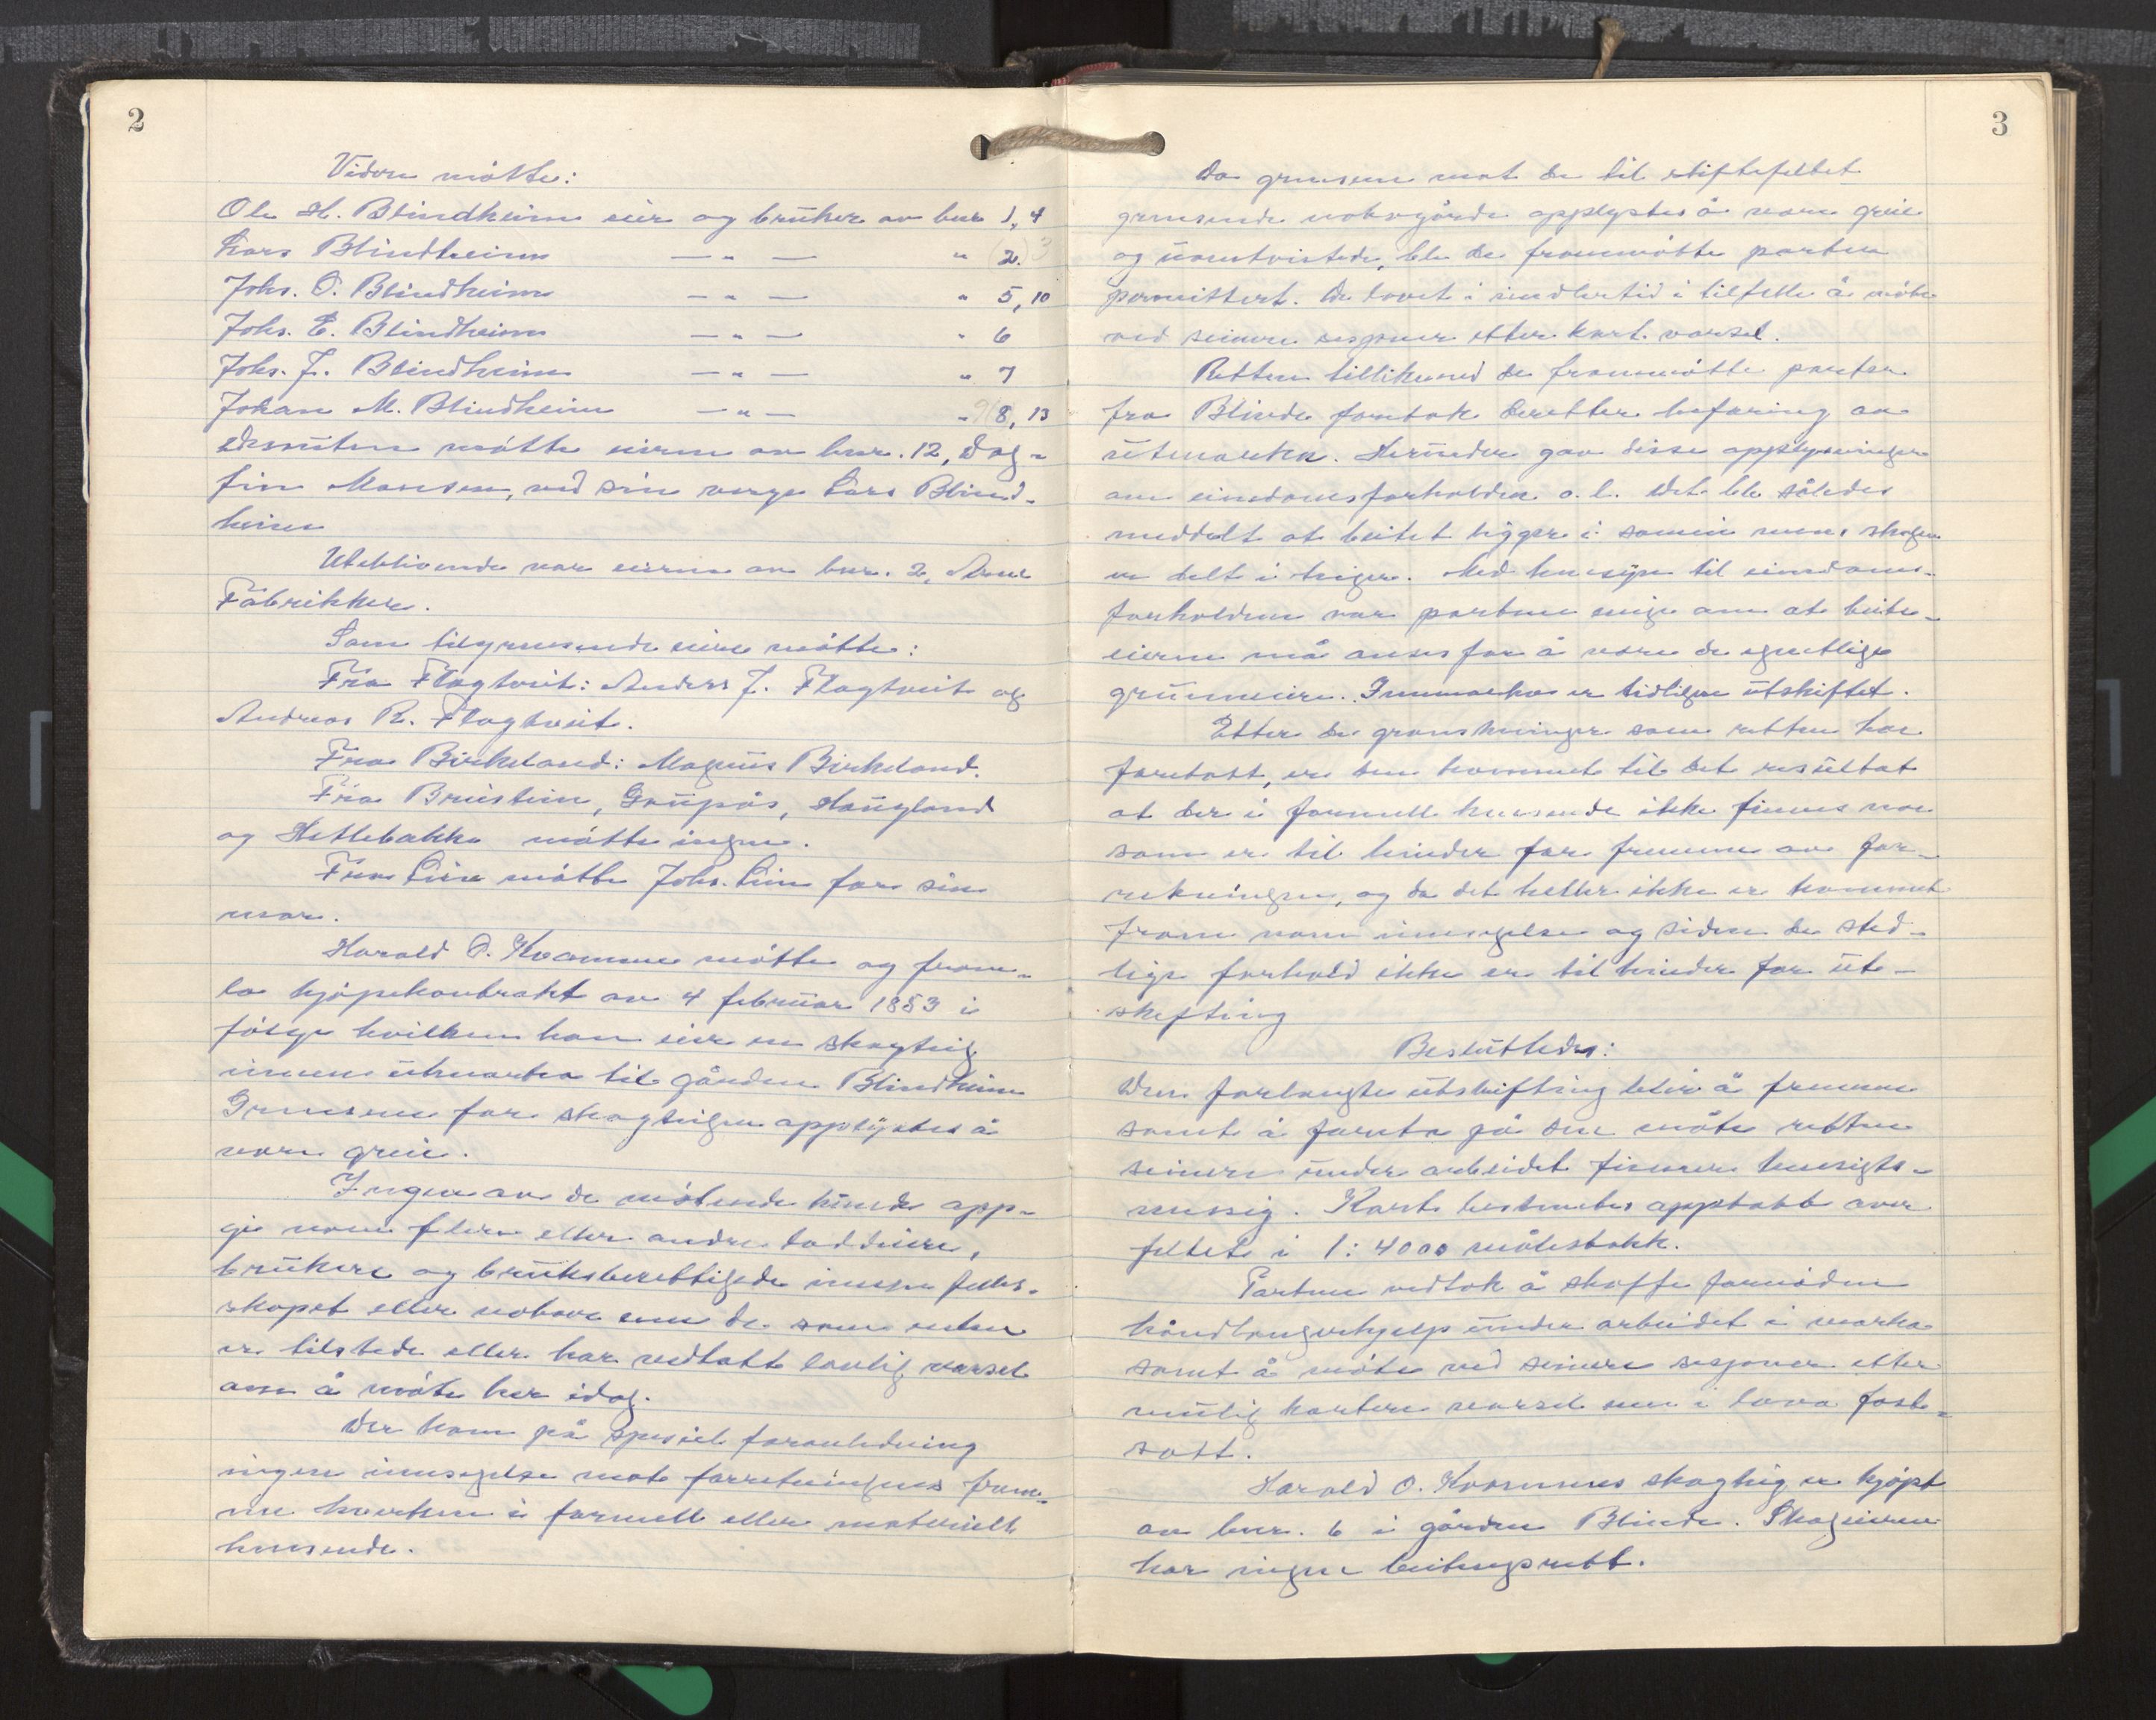 2
Videre møtte:
Ole H. Blindheim eier og bruker av bnr 1, 4
Lars Blindheim — " — " (2.) 3
Johs. O. Blindheim — " — " 5, 10
Johs. E. Blindheim — " — " 6
Johs. J. Blindheim — " — " 7
Johan M. Blindheim — " — " 8, 13
Dessuten møtte eieren av bnr. 12, Dag-
fin Monsen, ved sin verge Lars Blind-
heim
Uteblivende var eieren av bnr. 2, Arne
Fabrikker.
Som tilgrensende eiere møtte:
Fra Flagtveit: Anders J. Flagtveit og
Andreas R. Flagtveit.
Fra Birkeland: Magnus Birkeland.
Fra Brustein, Gaupås, Haugland
og Hetlebakke møtte ingen.
Fra Lien møtte Johs. Lien for sin
mor.
Harald O. Kvamme møtte og frem-
la kjøpekontrakt av 4 februar 1853 i
følge hvilken han eier en skogteig
innen utmarka til gården Blindheim
Grensene for skogteigen opplystes å
være greie.
Ingen av de møtende kunde opp-
gi noen flere eller andre loddeiere,
brukere og bruksberettigede innen felles-
skapet eller naboer enn de som enten
er tilstede eller har vedtatt lovlig varsel
om å møte her idag.
Der kom på spesiel foranledning
ingen innsigelse mot forretningens frem-
me hverken i formell eller materiell
henseende.
3
Da grensene mot de til skiftefeltet
grensende nabogårde opplystes å være greie
og uomtvistede, ble de frammøtte parter
permittert. De lovet i imidlertid i tilfelle å møte
ved seinere sesjoner etter kort varsel.
Retten tillikemed de frammøtte parter
fra Blinde foretok deretter befaring av
utmarka. Herunder gav disse opplysninger
om eiendomsforholdene o.l. Det ble således
meddelt at beitet ligger i sameie mens skogen
er delt i teiger. Med hensyn til eiendoms-
forholdene var partene enige om at beite-
eierne må anses for å være de egentlige
grunneiere. Innmarka er tidligere utskiftet.
Etter de granskninger som retten har
foretatt, er den kommet til det resultat
at der i formell henseende ikke finnes noe
som er til hinder for fremme av for-
retningen, og da det heller ikke er kommet
fram noen innsigelse og siden de sted-
lige forhold ikke er til hinder for ut-
skifting
Besluttedes:
Den forlangte utskifting blir å fremme
samt å foreta på den måte retten
seinere under arbeidet finner hensigts-
messig. Kart bestemtes opptatt over
feltet i 1:4000 målestokk.
Partene vedtok å skaffe fornøden
håndlangerhjelp under arbeidet i marka
samt å møte ved seinere sesjoner etter
mulig kortere varsel enn i lova fast-
satt.
Harald O. Kvammes skogteig er kjøpt
av bnr. 6 i gården Blinde. Skogeieren
har ingen beitningsrett.